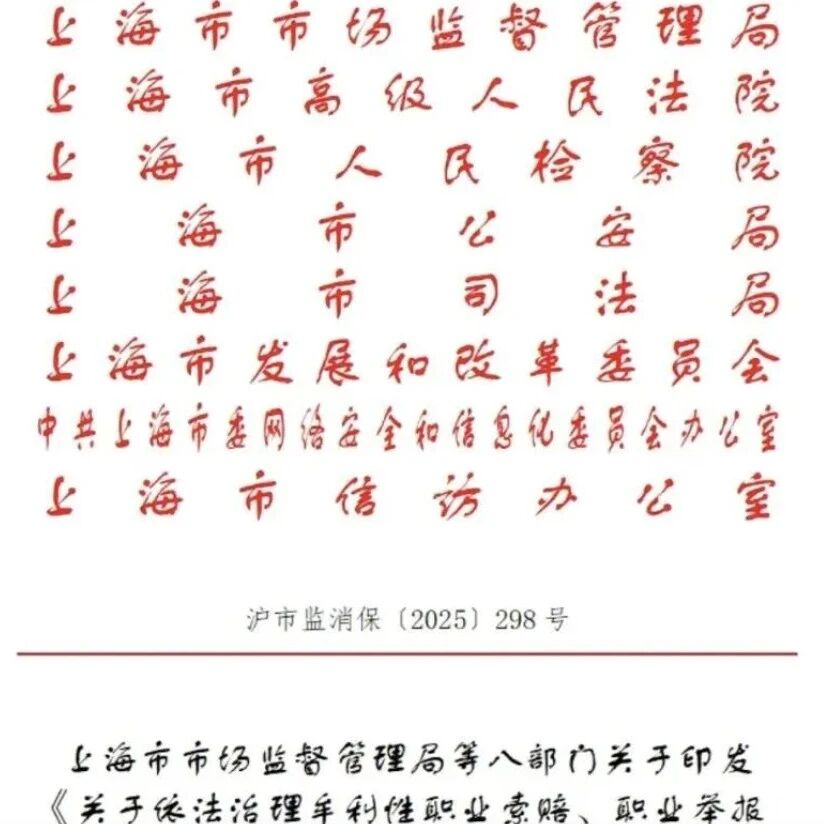 上海市市场监督管理局
上海市高级人民法院
上海市人民检察院
上海市公安局
上海市司法局
上海市发展和改革委员会
中共上海市委网络安全和信息化委员会办公室
上海市信访办公室
沪市监消保〔2025〕298号
上海市市场监督管理局等八部门关于印发
《关于依法治理牟利性职业索赔、职业举报